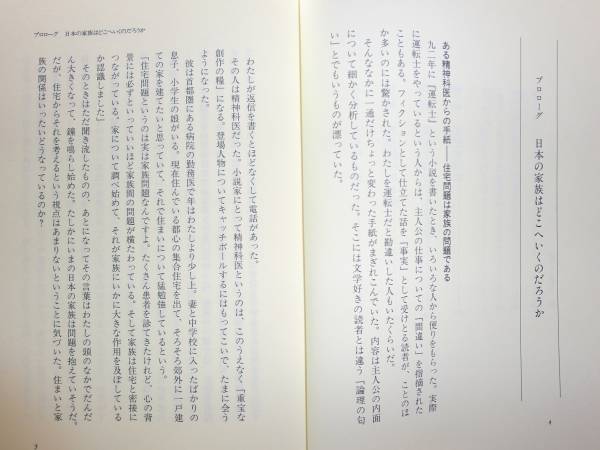 プロローグ　日本の家族はどこへいくのだろうか
ある精神科医からの手紙――住宅問題は家族の問題である
九二年に『運転士』という小説を書いたとき、いろいろな人から便りをもらった。実際
に運転士をやっているという人からは、主人公の仕事についての「間違い」を指摘された
こともある。フィクションとして仕立てた話を「事実」として受けとる読者が、ことのほ
か多いのには驚かされた。わたしを運転士だと勘違いした人もいたくらいだ。
そんななかに一通だけちょっと変わった手紙がまぎれこんでいた。内容は主人公の内面
について細かく分析しているものだった。そこには文学好きの読者とは違う「論理の匂
い」とでもいうものが漂っていた。
4
プロローグ　日本の家族はどこへいくのだろうか
わたしが返信を書くとほどなくして電話があった。
その人は精神科医だった。小説家にとって精神科医というのは、このうえなく「重宝な
創作の糧」になる。登場人物についてキャッチボールするにはもってこいで、たまに会う
ようになった。
彼は首都圏にある病院の勤務医で年はわたしより少し上。妻と中学校に入ったばかりの
息子、小学生の娘がいる。現在住んでいる都心の集合住宅を出て、そろそろ郊外に一戸建
ての家を建てたいと思っていて、それで住まいについて猛勉強しているという。
「住宅問題というのは実は家族問題なんですよ。たくさん患者を診てきたけれど、心の背
景には必ずといっていいほど家族間の問題が横たわっている。そして家族は住宅と密接に
つながっている。家について調べ始めて、それが家族にいかに大きな作用を及ぼしている
か認識しました」
そのときはただ聞き流したものの、あとになってその言葉はわたしの頭のなかでだんだ
ん大きくなって、鐘を鳴らし始めた。たしかにいまの日本の家族は問題を抱えていそうだ。
だが、住宅からそれを考えるという視点はあまりないということに気づいた。住まいと家
族の関係はいったいどうなっているのか？
5